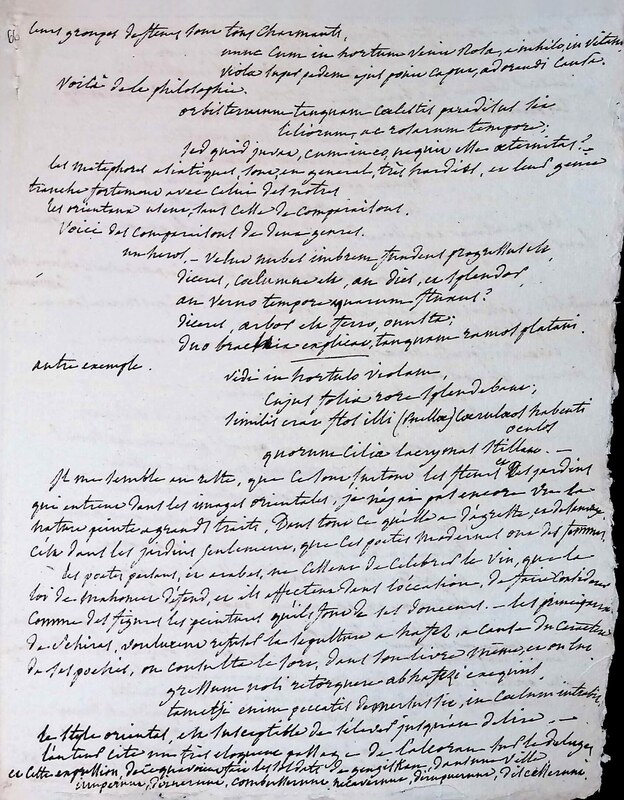 66
leurs groupes de fleurs sont tous charmants,
nunc cum in hortum venit Rosa, e nihilo, in vitam
viola supo pedem ejus ponit caput, adorandi causa.
Voilà de la philosophie.
orbis terrarum tanquam coelestis paradisus sit
liliorum, ac rosarum tempore;
sed quid juvat, cum in eo, nequit esse aeternitas? -
les métaphores asiatiques, sont, en general, très hardies, et leur genre
tranche fortement avec celui des notres
les orientaux usent, sans cesse de comparaisons.
Voici des comparaisons de deux genres.
un heros, - velut nubes imbrem fundens progressus est,
diceres, coelumne est, an dies, et splendor,
an verno tempore aquarum fluxus?
diceres, arbor est ferro, onusta;
duo brachia explicat, tanquam ramos platani.
autre exemple.
vidi in hortulo violam,
cujus folia rore splendebant;
similis erat flos illi (puellae) coeruleos habenti
oculos
quorum cilia lacrymas stillant. -
Il me semble au reste, que ce sont surtout les fleurs et les jardins
qui entrent dans les images orientales, je n'ai pas encore vu la
nature peinte a grands traits. Dans tout ce qu'elle a d'agreste, et de sauvage
c'est dans les jardins seulement, que ces poetes modernes ont des
les poetes persans, et arabes, ne cessent de celebrer le vin, que la
loi de Mahomet défend, et ils affectent dans l'occasion, de faire considerer
comme des figures les peintures qu'ils font de ses douceurs. - les principaux
de Schiras, voulurent refuser la sepulture a hafez, a cause du caractere
de ses poesies, on consulta le sort, dans son livre meme, et on lut
gressum noli retorquere ab hafezi exequiis
tametsi enim peccatis demersus sit, in coelum intrabit.
le style oriental, est susceptible de s'élever jusqu'au delire. -
l'auteur cite un tres eloquent passage de l'alcoran sur le deluge,
et cette expression, de ce que vont faire les soldats de gengiskan, dans une ville
irruperunt, diruerunt, combusserunt, necaverunt, diripuerunt, discesserunt.